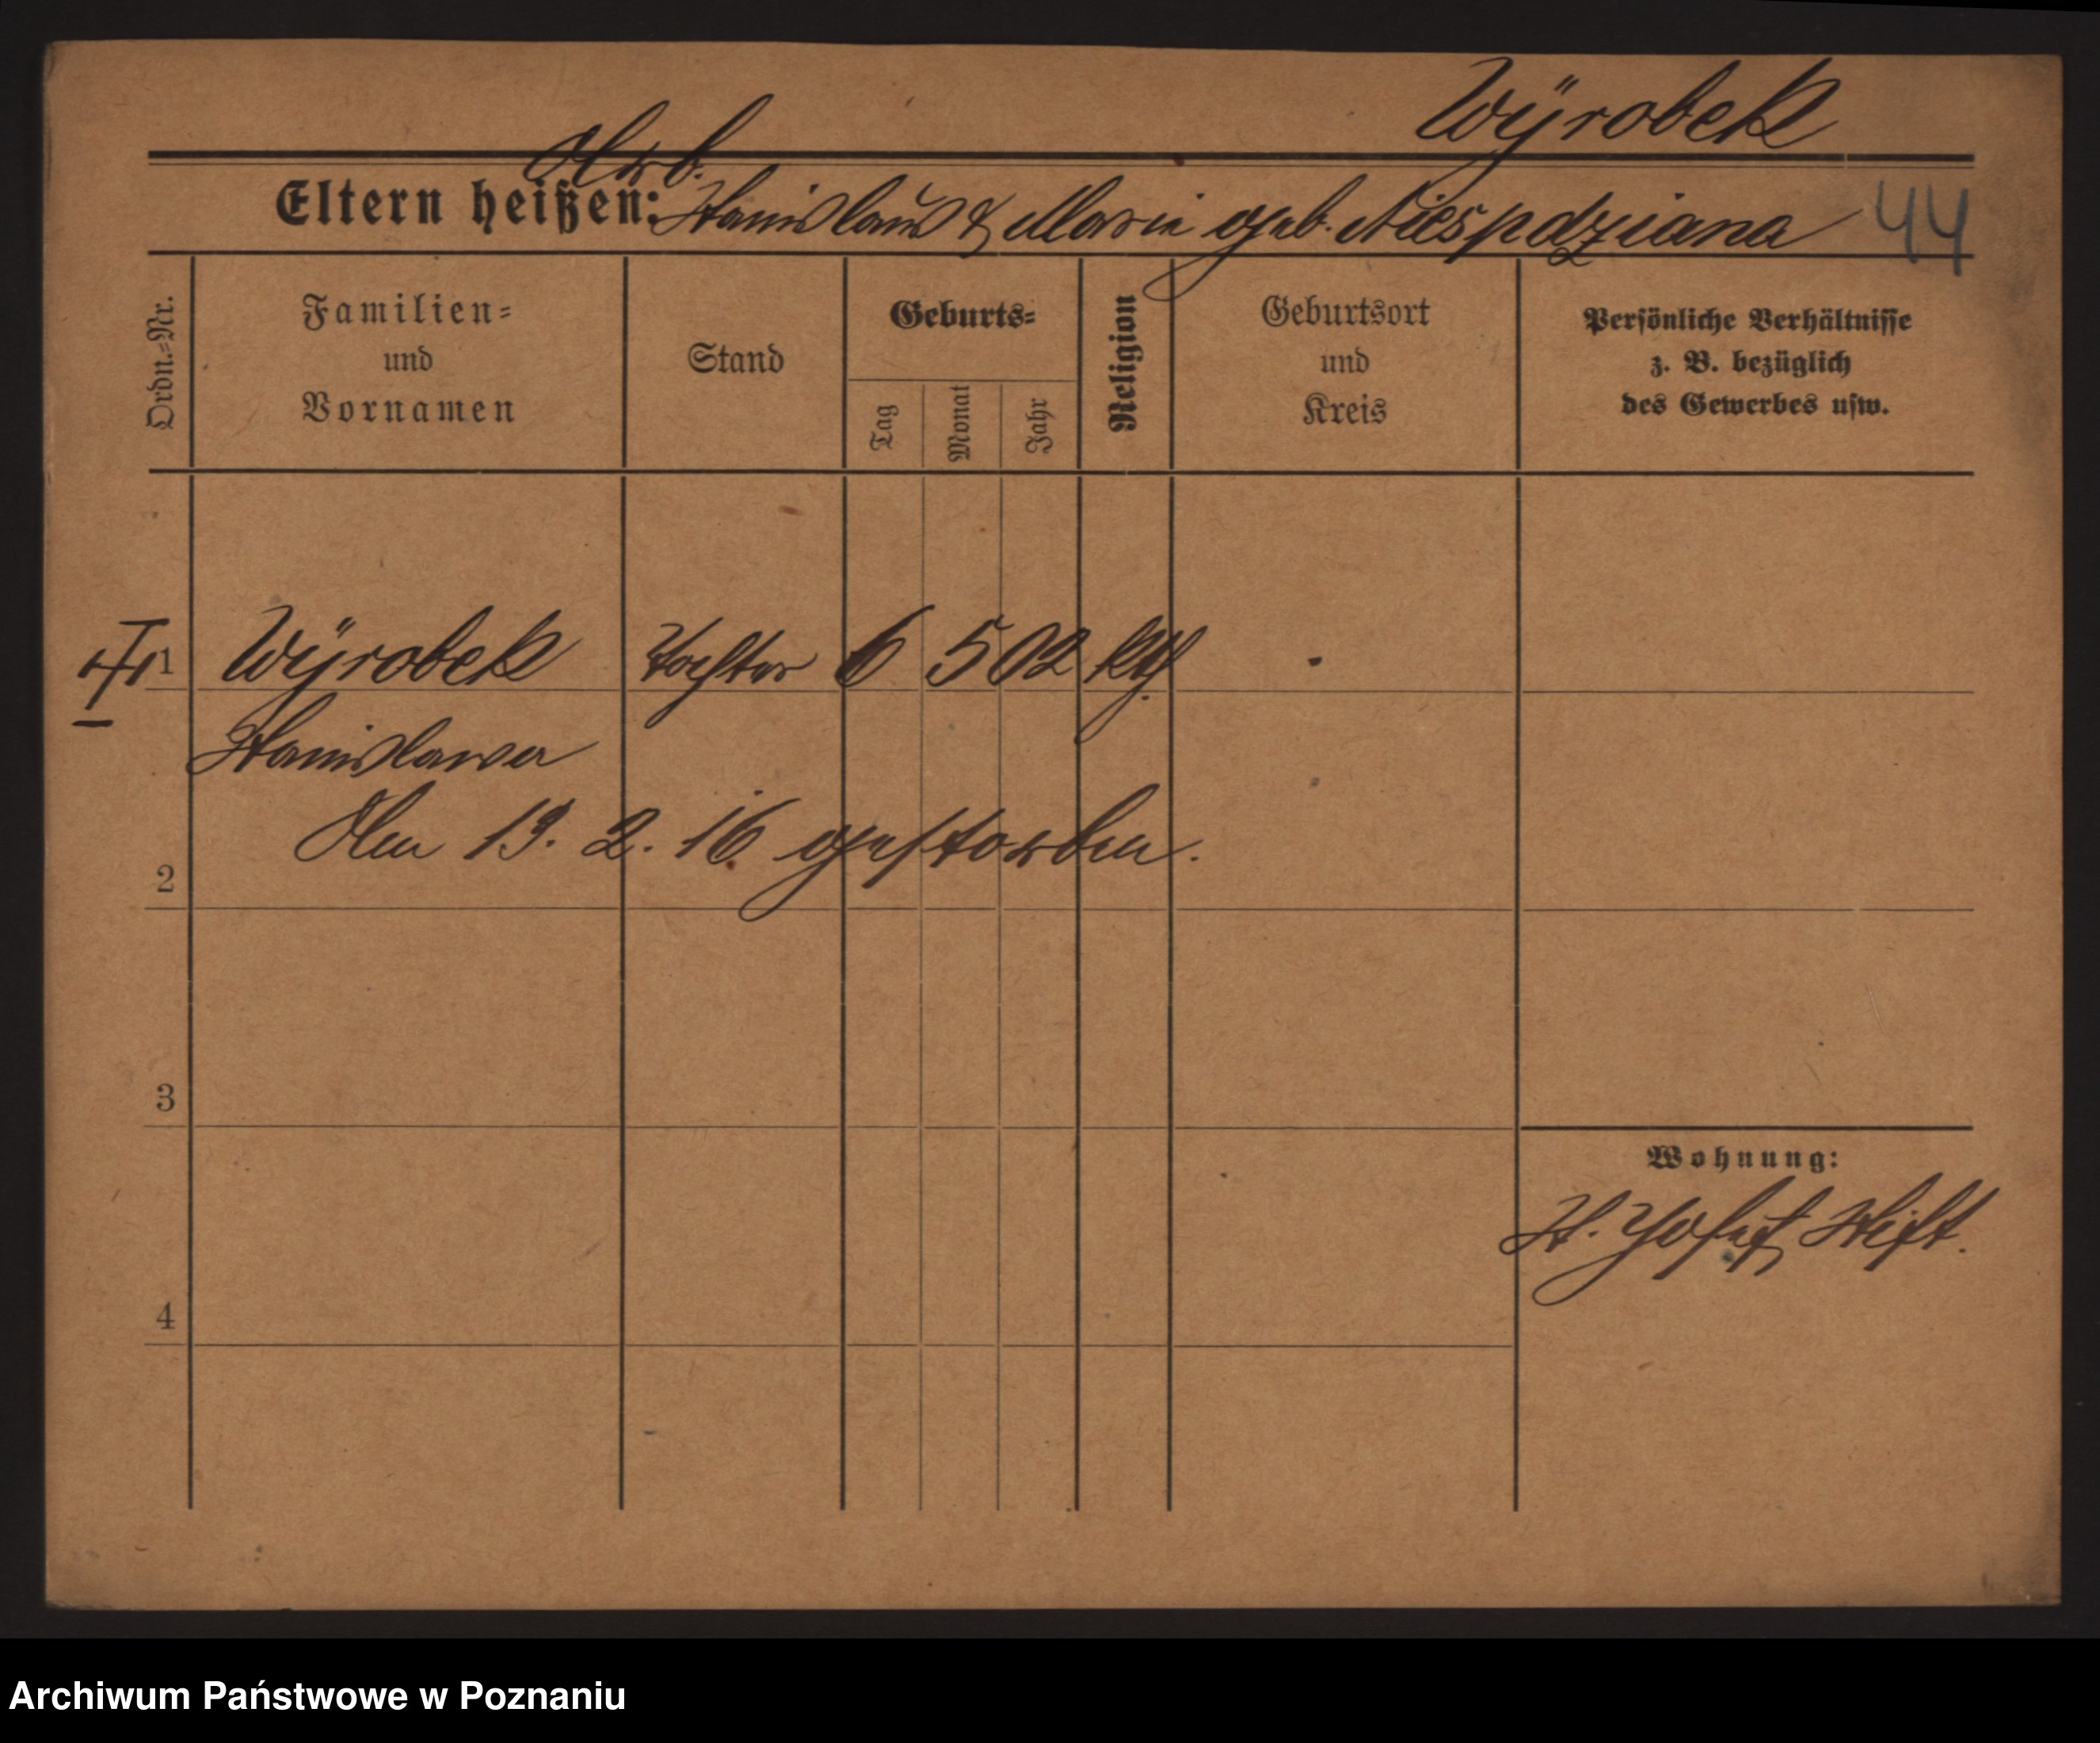 Wÿrobek
Arb.
Eltern heißen: Stanislaus & Marie geb. Niespdziana 44
Ordn.=Nr.
Familien=
und
Vornamen
Stand
Geburts=
Tag
Monat
Jahr
Religion
Geburtsort
und
Kreis
Persönliche Verhältnisse
z. B. bezüglich
des Gewerbes usw.
1 Wÿrobek Tochter 6 5 02 kth.
Stanislawa
Am 19. 2. 16 gestorben.
2
3
Wohnung:
St. Josef Stift.
4
Archiwum Państwowe w Poznaniu